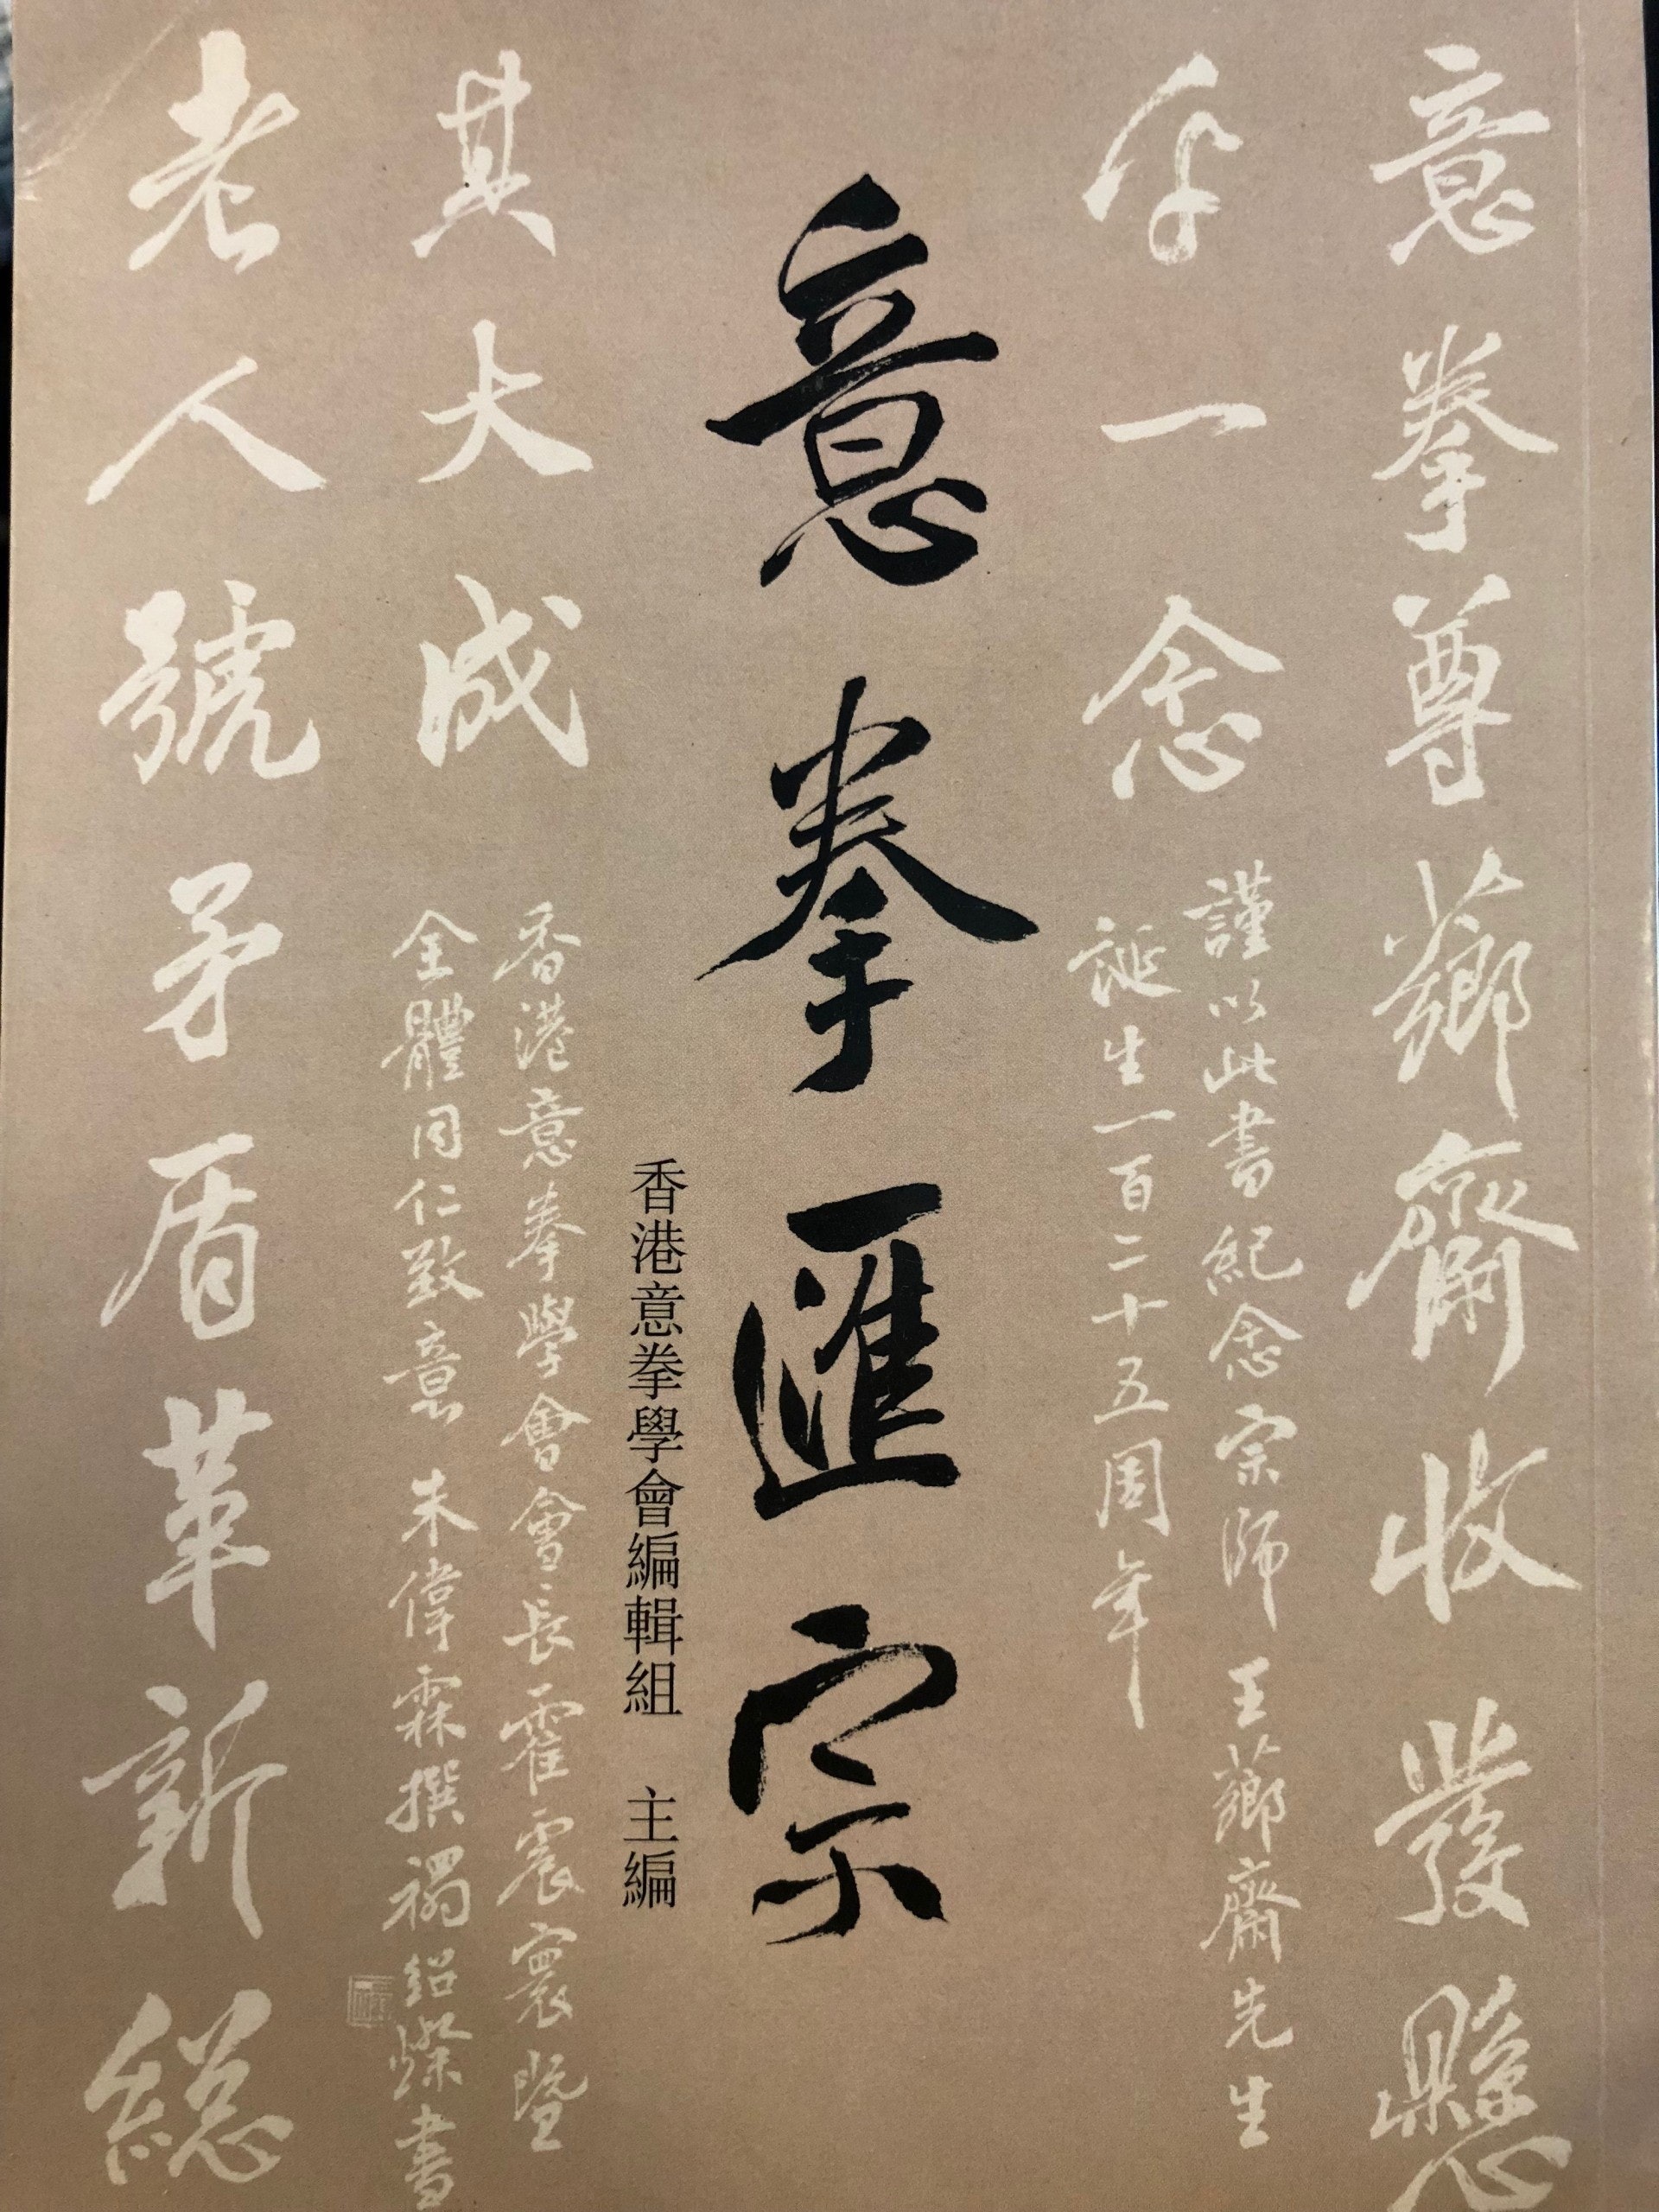 意拳尊薌齋收發懸
乎一念
謹以此書紀念宗師王薌齋先生
誕生一百二十五周年
意拳匯宗
香港意拳學會編輯組 主編
香港意拳學會會長霍震寰暨
全體同仁致意 朱偉霖撰 禤紹燦書
老人號矛盾革新總
其大成